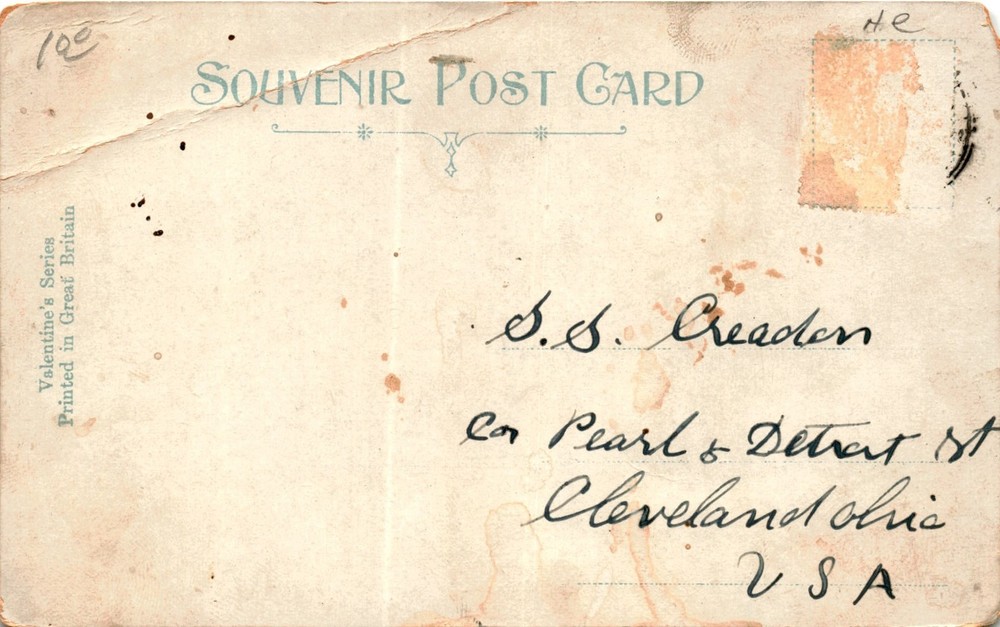 10⁰⁰
H C
SOUVENIR POST CARD
Valentine's Series
Printed in Great Britain
S. S. Creadon
Cor Pearl & Detroit St
Cleveland Ohio
U S A